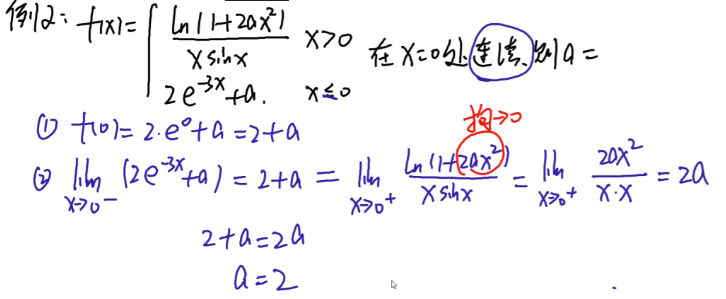 例2: f(x)= { ln(1+2ax²) / (x sinx) x>0 在x=0处连续, 则a=
2e^{-3x}+a. x≤0
① f(0)=2·e⁰+a=2+a
狗→0
② lim_{x→0⁻} (2e^{-3x}+a) = 2+a = lim_{x→0⁺} ln(1+2ax²) / (x sinx) = lim_{x→0⁺} 2ax² / (x·x) = 2a
2+a=2a
a=2